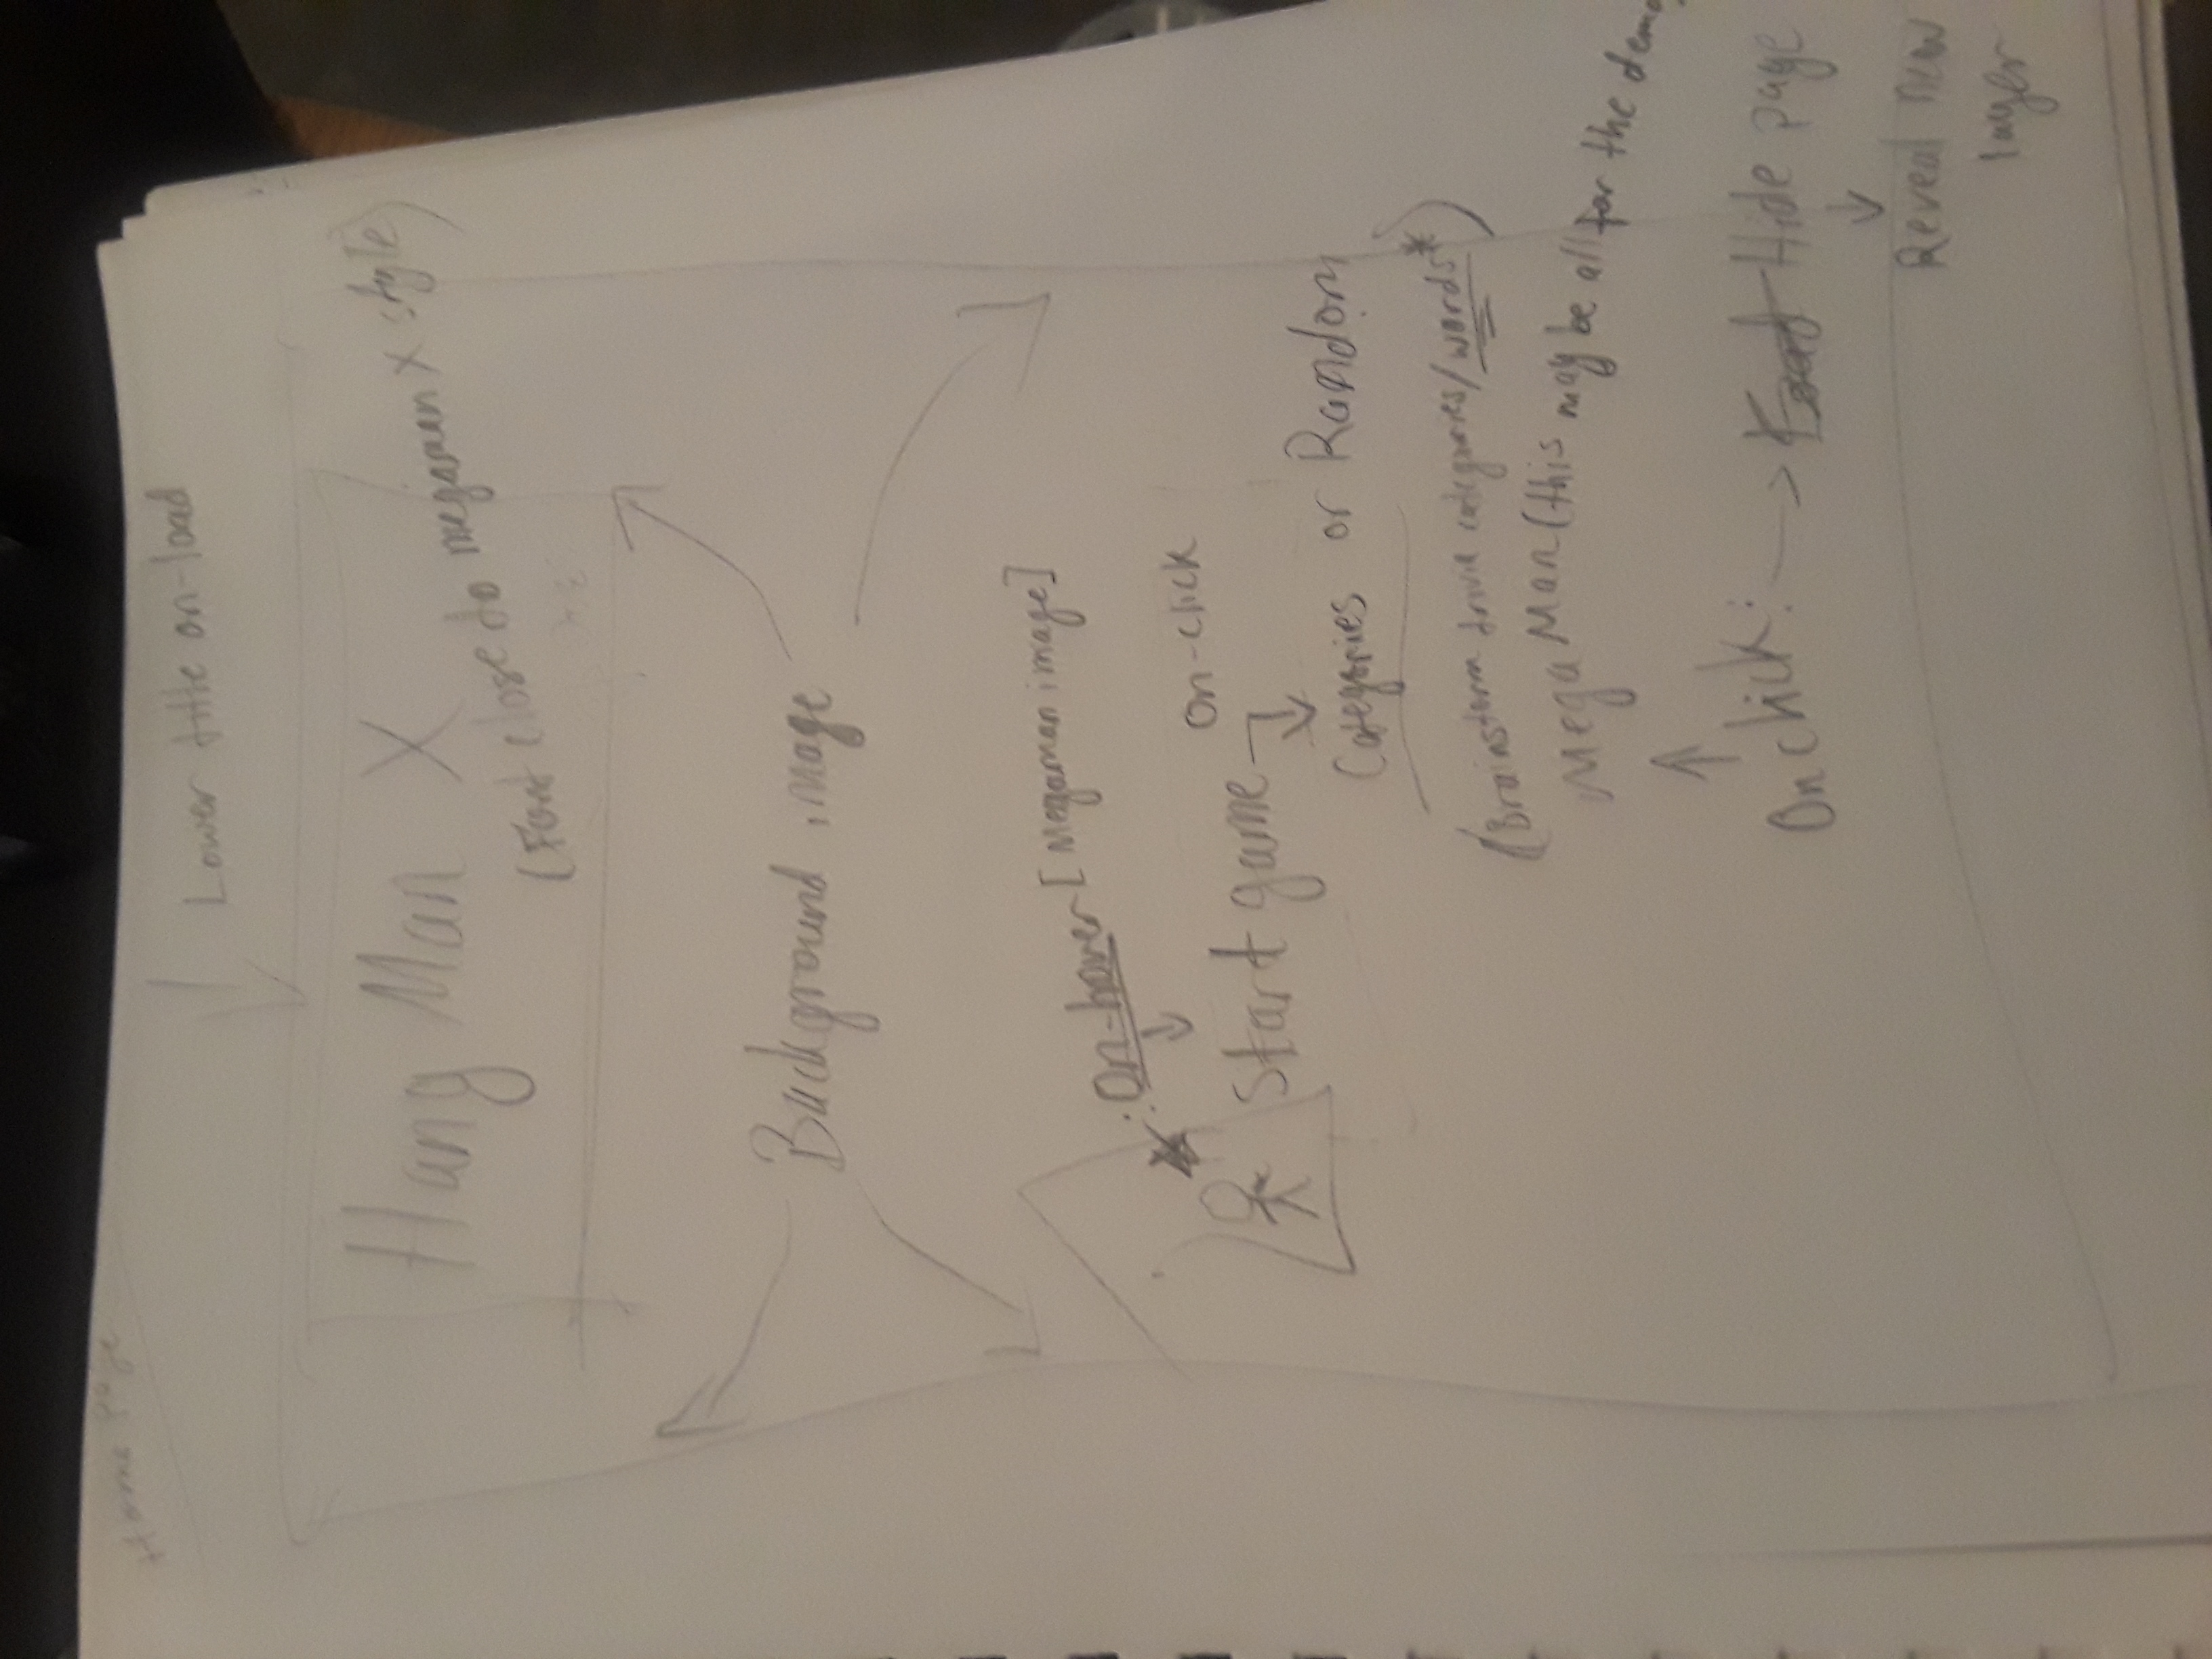 Home Page
Lower title on-load
Hang Man X
(Font close to megaman X style)
Background image
: On-hover [Megaman image]
Start game
On-click
Categories or Random
(Brainstorm trivia categories/words*)
Mega Man (this may be all for the demo
On click:
Hide page
Reveal new
layer